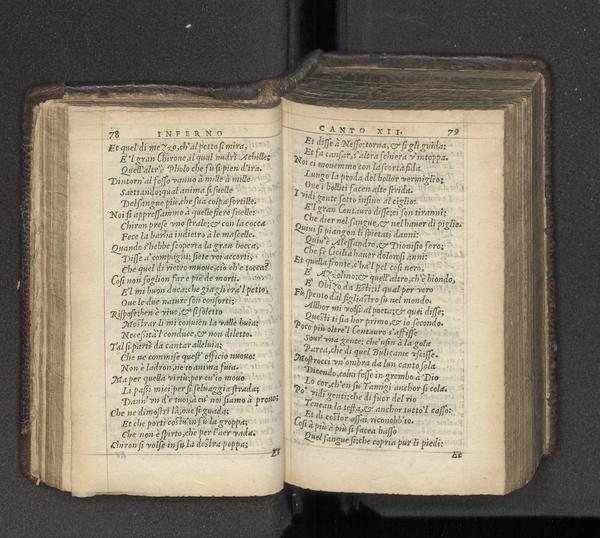 78 INFERNO
Et quel di mezzo, ch'al petto si mira,
E'l gran Chirone, il qual nudrì Achille:
Quell'altr'è Pholo che fù si pien d'ira.
Dintorn'al fosso vanno à mille à mille
Saettando: qual anima si suelle
Del sangue più, che sua colpa sortille.
Noi si appressammo à quelle fiere snelle:
Chiron prese vno strale; & con la cocca
Fece la barba indietro à le mascelle.
Quando s'hebbe scoperta la gran bocca,
Disse a compagni; siete voi accorti,
Che quel di rietro muoue, ciò ch'e tocca?
Cosi non soglion far e piè de morti.
E'l mi buon duca; che già gli era'l petto,
Oue le due nature son consorti;
Rispose: ben è viuo, & si soletto
Mostrar li mi conuien la valle buia:
Necessità'l conduce, & non diletto.
Tal si partì da cantar alleluia;
Che ne commise quest'officio nuouo:
Non è ladron, ne io anima fuia.
Ma per quella virtù; per cu'io muouo
Li passi miei per si seluaggia strada;
Dann'vn d'e tuoi, à cu'noi siamo à prouo:
Che ne dimostri là, oue si guada;
Et che porti costu'in sù la groppa;
Che non è spirto, che per l'aer vada.
Chiron si volse in sù la destra poppa;
Et
CANTO XII. 79
Et disse à Nesso: torna, & si gli guida;
Et fa cansar, s'altra schiera v'intoppa.
Noi ci mouemmo con la scorta fida
Lungo la proda del bollor vermiglio;
Oue i bolliti facen alte strida.
I vidi gente sotto infino al ciglio:
E'l gran Centauro disse; ei son tiranni;
Che dier nel sangue, & ne l'hauer di piglio.
Quiui si piangon li spietati danni:
Quiu'è Alessandro, & Dionisio fero;
Che fè Cicilia hauer dolorosi anni:
Et quella fronte, c'ha'l pel così nero,
E' Azolino; & quell'altro, ch'è biondo,
E' Obizo da Esti; il qual per vero
Fù spento dal figliastro sù nel mondo.
Allhor mi volsi al poeta; & quei disse;
Questi ti sia hor primo, & io secondo.
Poco più oltre'l Centauro s'affisse
Sour'vna gente; che'nfin à la gola
Parea, che di quel Bulicame vscisse.
Mostrocci vn'ombra da l'un canto sola
Dicendo, colui fesse in grembo à Dio
Lo cor, ch'en su Tamigi anchor si cola.
Po' vidi genti; che di fuor del rio
Tenean la testa, & anchor tutto'l casso:
Et di costor assai riconobb'io.
Così à più à più si facea basso
Quel sangue si; che copria pur li piedi:
Et